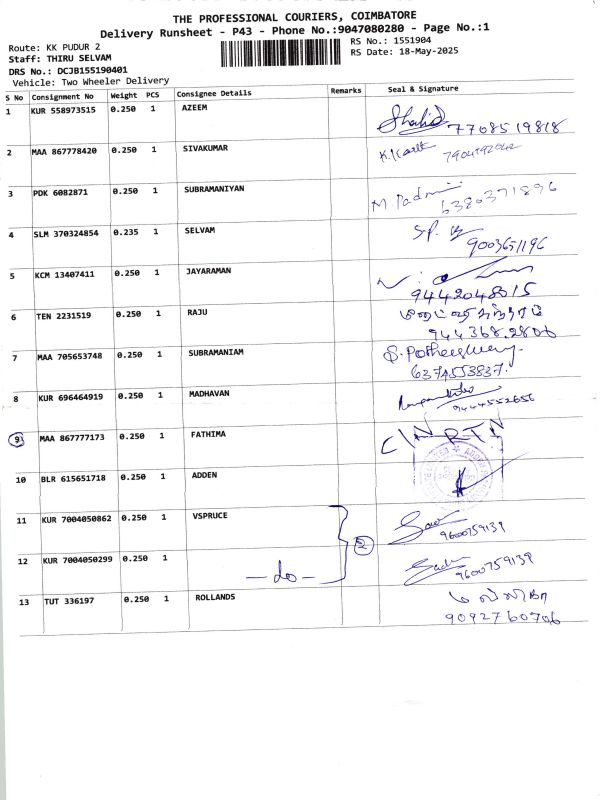 THE PROFESSIONAL COURIERS, COIMBATORE
Delivery Runsheet - P43 - Phone No.:9047080280 - Page No.:1
Route: KK PUDUR 2
RS No.: 1551904
Staff: THIRU SELVAM
RS Date: 18-May-2025
DRS No.: DCJB155190401
Vehicle: Two Wheeler Delivery
S No Consignment No Weight PCS Consignee Details Remarks Seal & Signature
1 KUR 558973515 0.250 1 AZEEM
Shahid 7708519818
2 MAA 867778420 0.250 1 SIVAKUMAR
K.Kartt
3 PDK 6082871 0.250 1 SUBRAMANIYAN
M. Padmi
6380371896
4 SLM 370324854 0.235 1 SELVAM
SP.
9003651196
5 KCM 13407411 0.250 1 JAYARAMAN
9442048015
6 TEN 2231519 0.250 1 RAJU
944368.2806
7 MAA 705653748 0.250 1 SUBRAMANIAM
6374553837.
8 KUR 696464919 0.250 1 MADHAVAN
9444552656
9 MAA 867777173 0.250 1 FATHIMA
C/N RTN
10 BLR 615651718 0.250 1 ADDEN
11 KUR 7004050862 0.250 1 VSPRUCE
9600759139
2
12 KUR 7004050299 0.250 1
— do —
9600759139
13 TUT 336197 0.250 1 ROLLANDS
9092760706